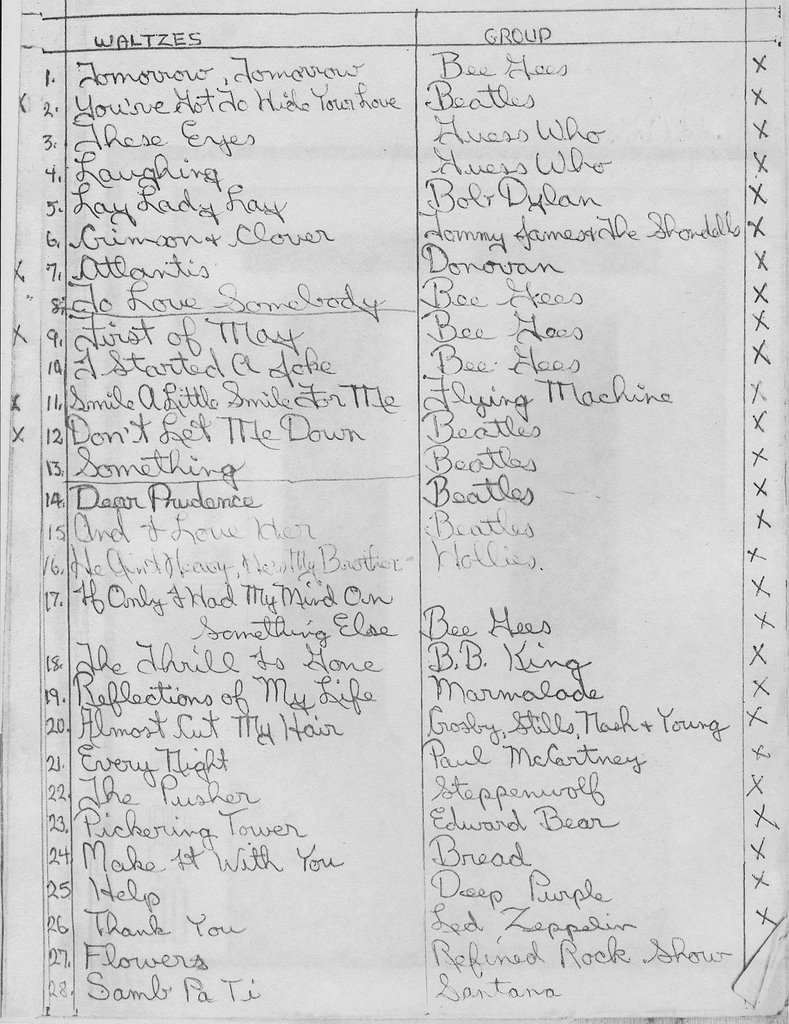 WALTZES GROUP
1. Tomorrow, Tomorrow Bee Gees X
X 2. You've Got To Hide Your Love Beatles X
3. These Eyes Guess Who X
4. Laughing Guess Who X
5. Lay Lady Lay Bob Dylan X
6. Crimson + Clover Tommy James & The Shondells X
X 7. Atlantis Donovan X
8. To Love Somebody Bee Gees X
X 9. First of May Bee Gees X
10. I Started A Joke Bee Gees X
X 11. Smile A Little Smile For Me Flying Machine X
X 12. Don't Let Me Down Beatles X
13. Something Beatles X
14. Dear Prudence Beatles X
15 And I Love Her Beatles X
16. He Ain't Heavy, He's My Brother - Hollies. X
17. If Only I Had My Mind On X
Something Else Bee Gees X
18. The Thrill Is Gone B.B. King X
19. Reflections of My Life Marmalade X
20. Almost Cut My Hair Crosby, Stills, Nash + Young X
21. Every Night Paul McCartney X
22. The Pusher Steppenwolf X
23. Pickering Tower Edward Bear X
24 Make It With You Bread X
25 Help Deep Purple X
26 Thank You Led Zeppelin X
27. Flowers Refined Rock Show
28. Samb Pa Ti Santana